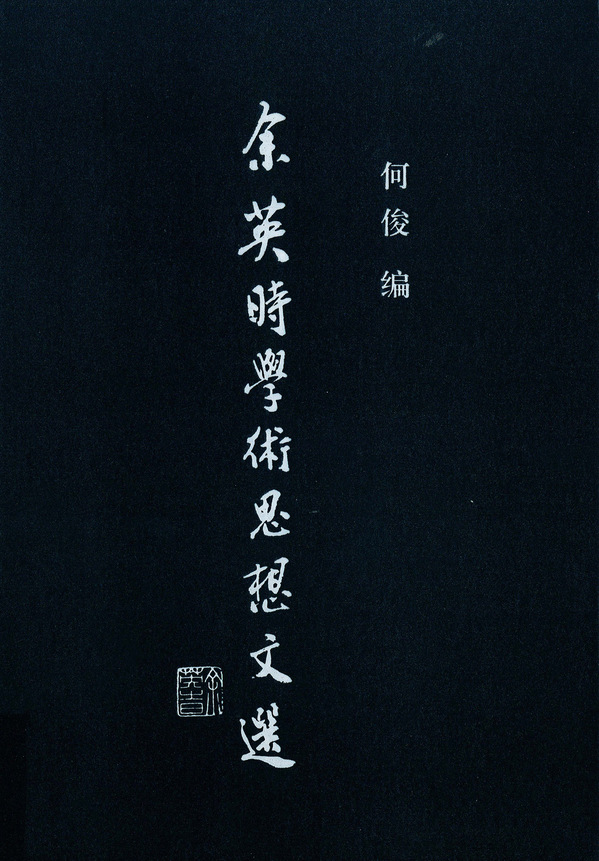 何俊 编
余英時學術思想文選